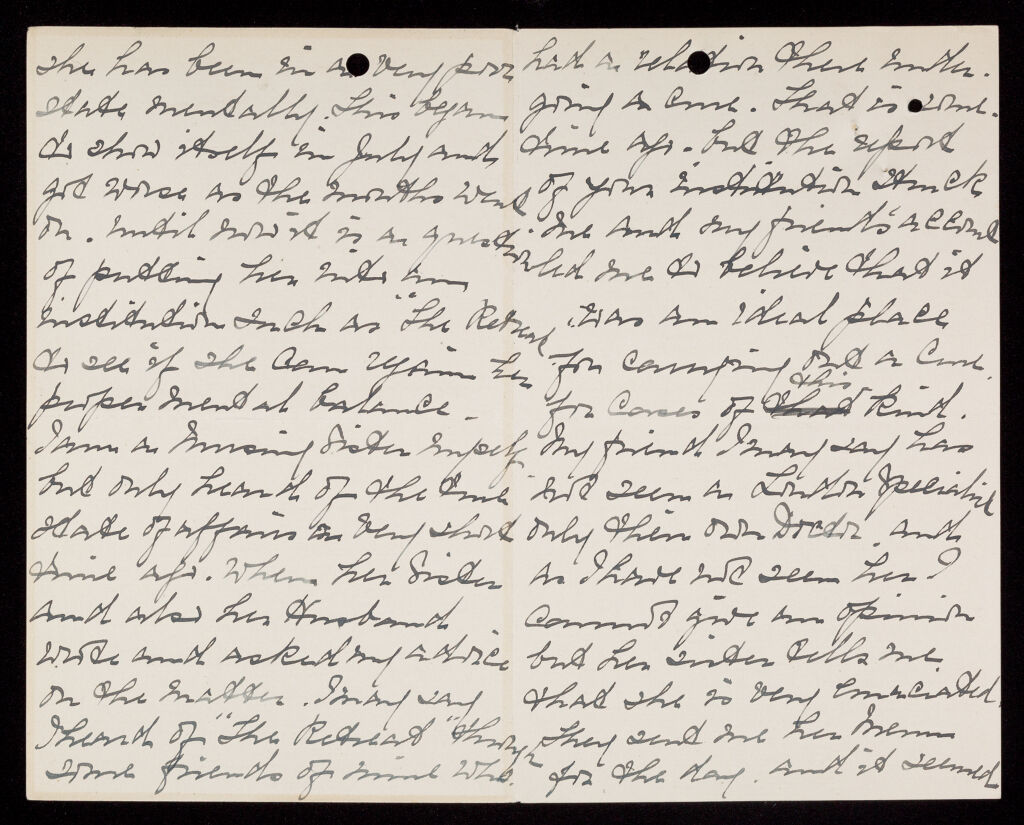 she has been in a very poor
state mentally. This began
to show itself in July and
got worse as the months went
on. until now it is a question
of putting her into an
institution such as "The Retreat
to see if she can regain her
proper mental balance -
I am a Nursing Sister myself
but only heard of the true
state of affairs a very short
time ago. when her Sister
and also her Husband
wrote and asked my advice
on the matter. I may say
I heard of "The Retreat" through
some friends of mine who.
had a relation there under-
going a cure. That is some-
time ago - but the report
of your institution struck
me and my friend's account
led me to believe that it
was an ideal place
for carrying out a Cure.
for Cases of that this kind.
My friend I may say has
not seen a London Specialist
only their own Doctor. and
as I have not seen her I
cannot give an opinion
but her sister tells me
that she is very emaciated.
They sent me her Menu
for the day. and it seemed